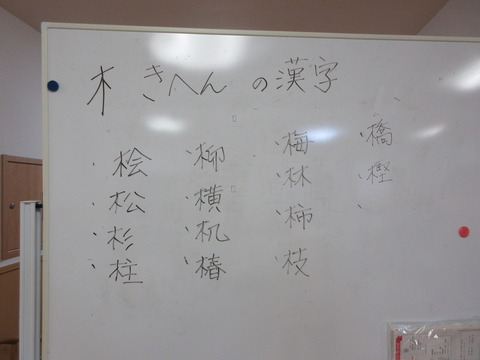 木 きへんの漢字
桧 柳 梅 橋
松 横 林 樫
杉 机 柿
柱 椿 枝